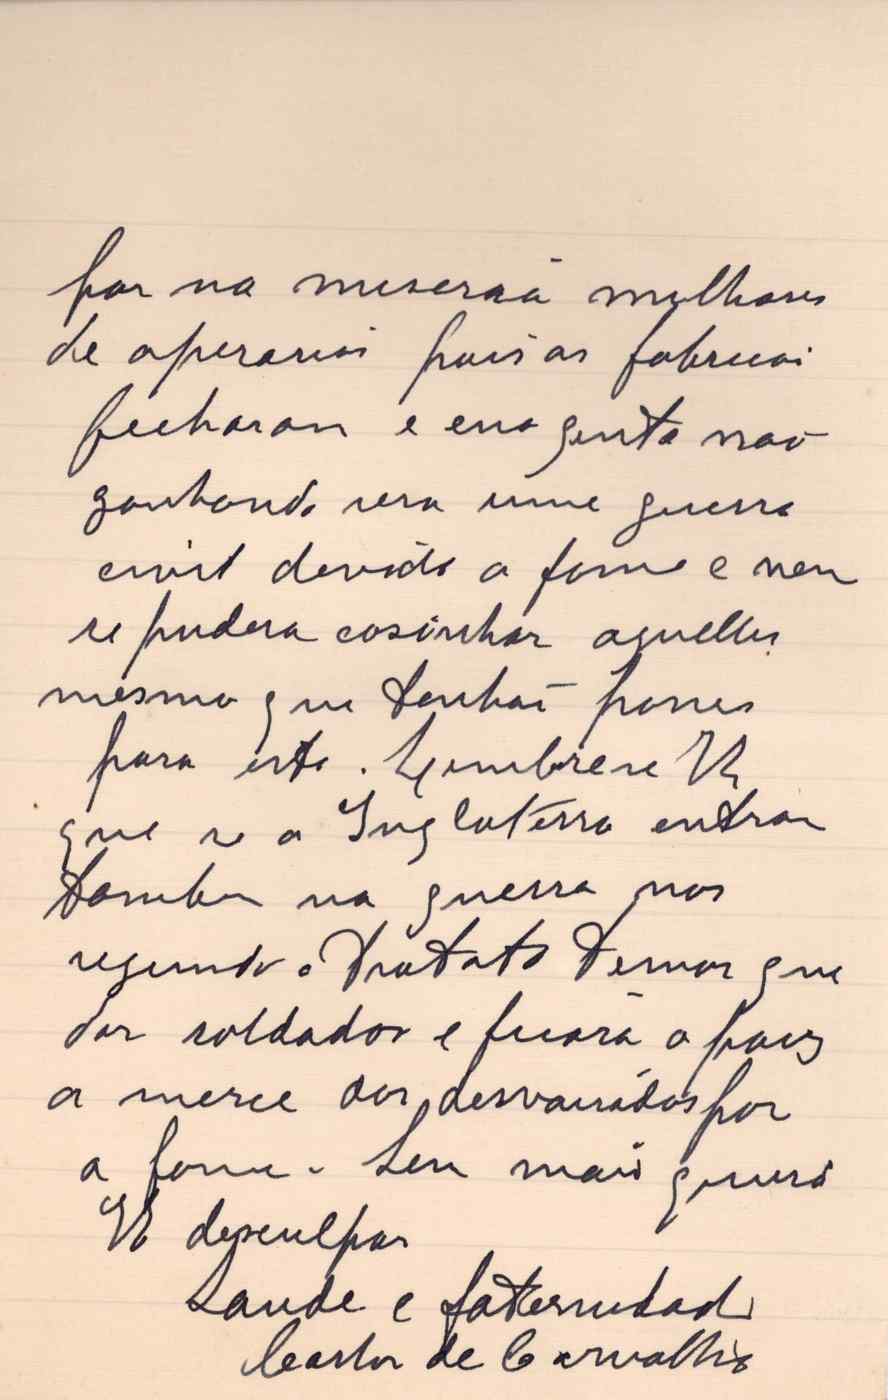 por na miseria milhares
de operarios pois as fabricas
fecharam e essa gente não
ganhando sera uma guerra
civil devido a fome e nem
se pudera cosinhar aquelles
mesmo que tenhaõ
para isto. Lembrese VE
que se a Inglaterra entrar
tambem na guerra nos
segundo o Tratato temos que
dar soldados e ficará o paiz
a merce dos desvairádos por
a fome. Sem mais queira
VE desculpar
Saude e faternidade
Carlos de Carvalho